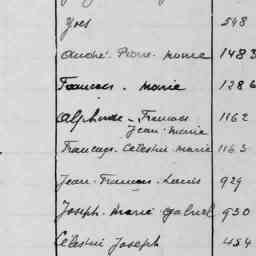 Yves 548
André-Pierre-Marie 1483
Francois-Marie 1286
Alphonse-Francois 1162
Jean-Marie
Francois-Celestin-Marie 1163
Jean-Francois-Louis 929
Joseph-Marie Gabriel 930
Celestin Joseph 454